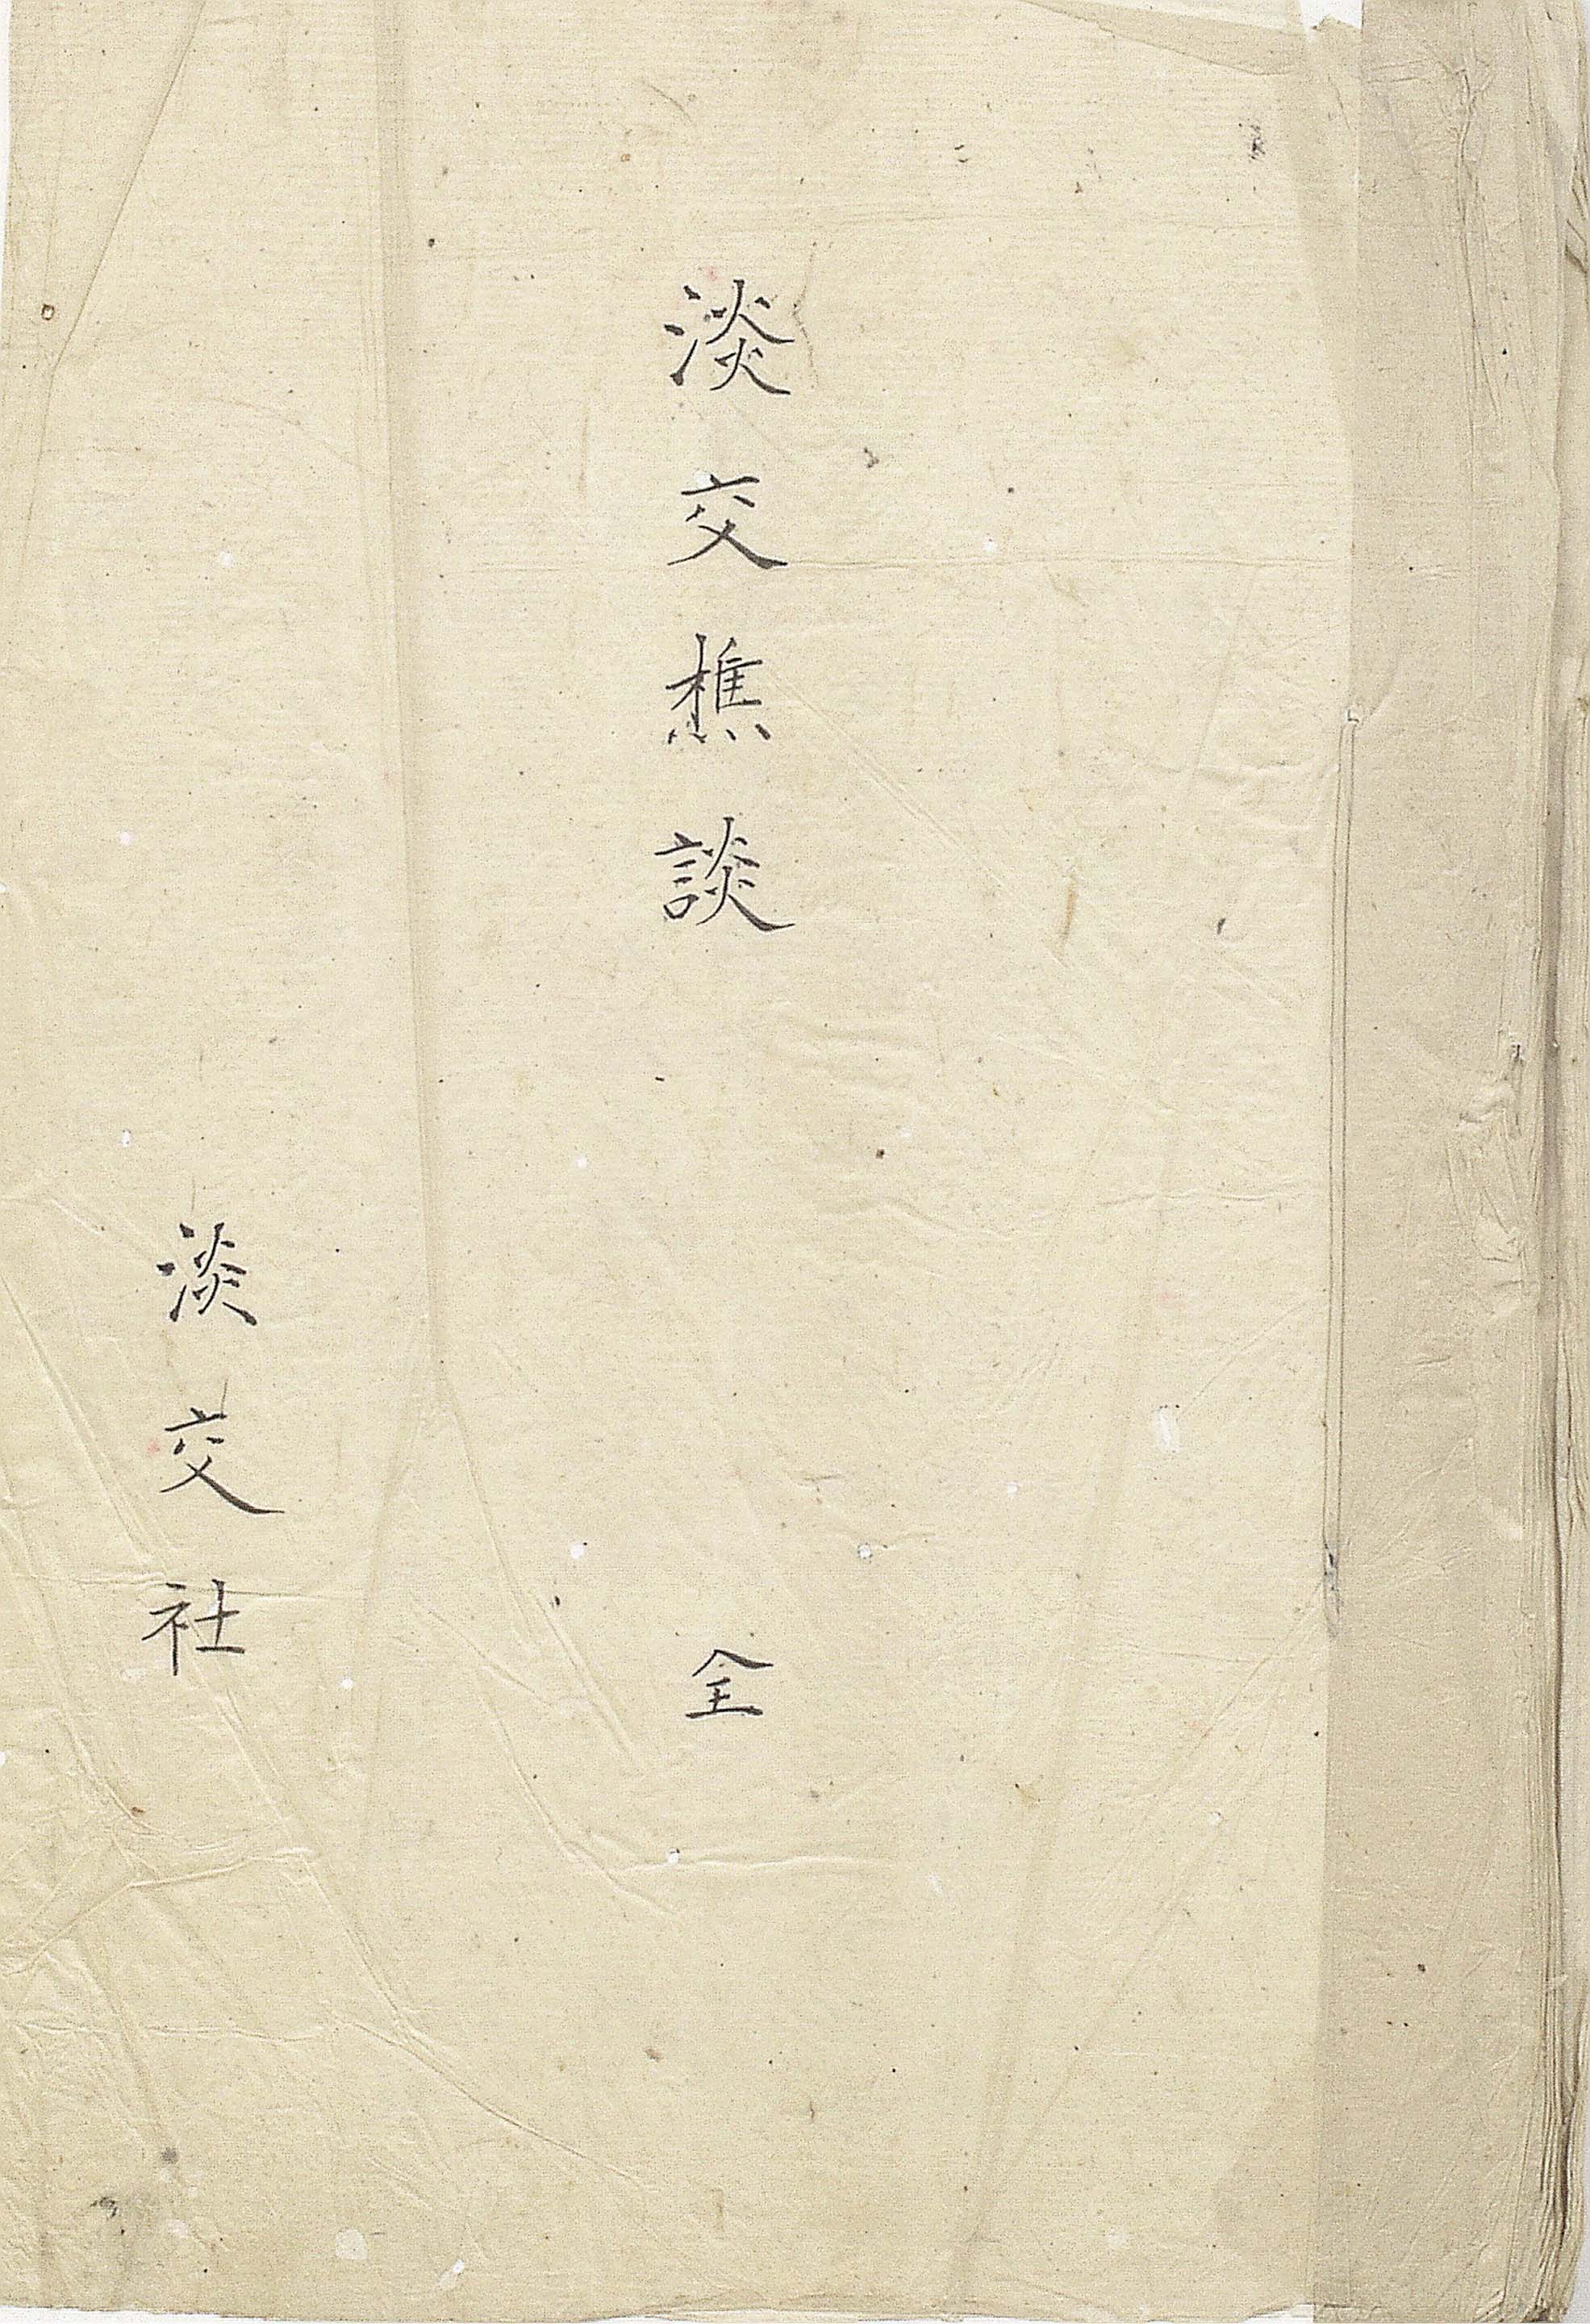 淡交樵談　全
淡交社